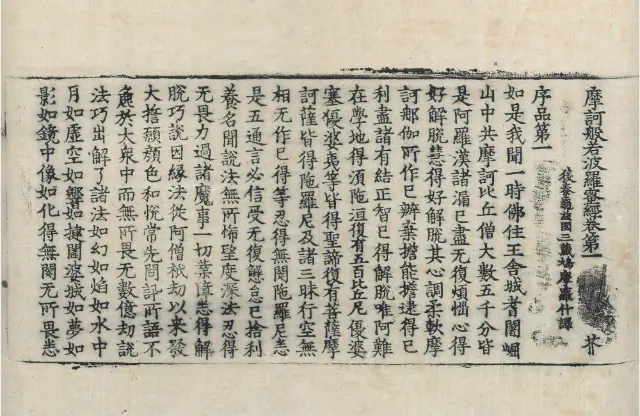 摩訶般若波羅蜜經卷第一 芥
後秦龜茲國三藏鳩摩羅什譯
序品第一
如是我聞一時佛住王舍城耆闍崛
山中共摩訶比丘僧大數五千分皆
是阿羅漢諸漏已盡無復煩惱心得
好解脫慧得好解脫其心調柔軟摩
訶那伽所作已辦棄擔能擔逮得已
利盡諸有結正智已得解脫唯阿難
在學地得須陁洹復有五百比丘尼優婆
塞優婆夷等皆得聖諦復有菩薩摩
訶薩皆得陁羅尼及諸三昧行空無
相无作已得等忍得無閡陁羅尼悉
是五通言必信受无復懈怠已捨利
養名聞說法無所悕望度深法忍得
无畏力過諸魔事一切業障悉得解
脫巧說因緣法從阿僧祇劫以來發
大誓願顏色和悅常先問訊所語不
麁於大衆中而無所畏無數億劫說
法巧出解了諸法如幻如焰如水中
月如虛空如響如揵闥婆城如夢如
影如鏡中像如化得無閡无所畏悉